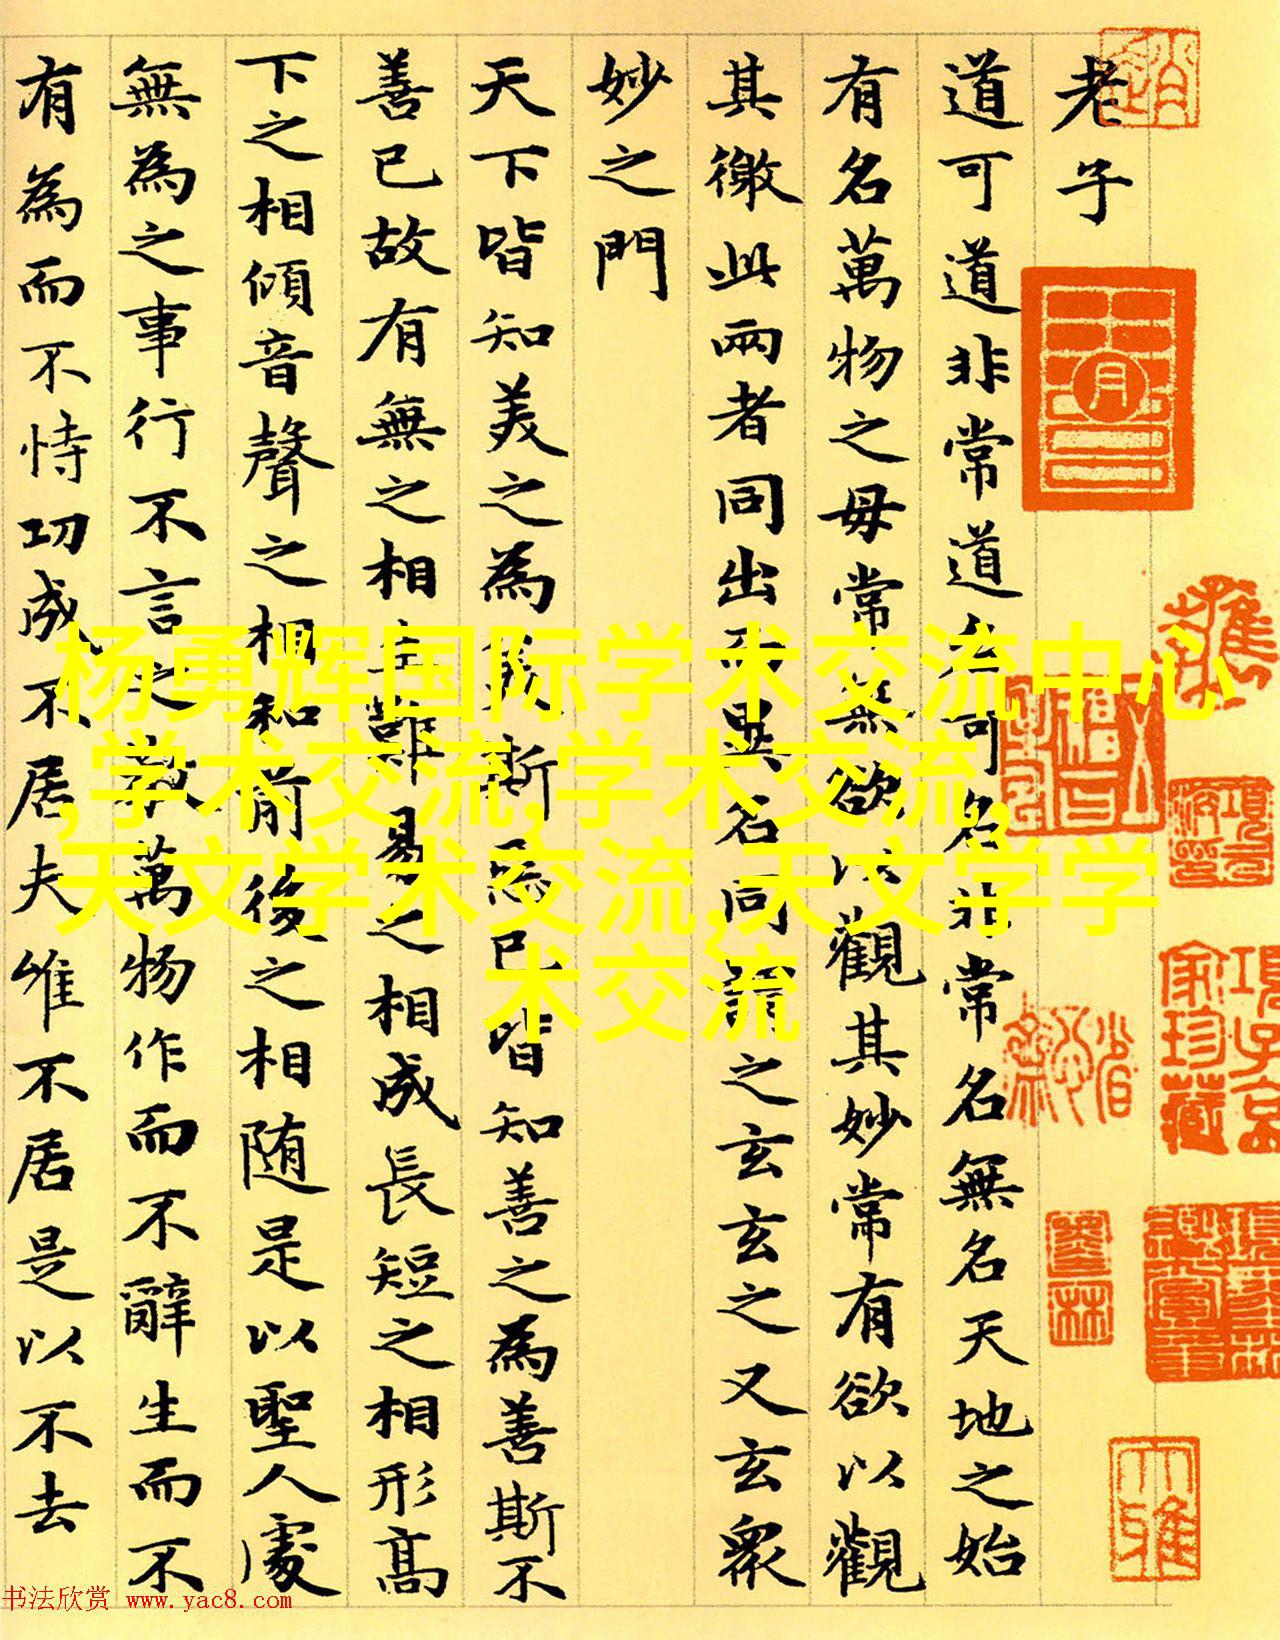 老子
道可道非常道名可名非常名無名天地之始
有名萬物之母常無欲以觀其妙常有欲以觀
其徼此兩者同出而異名同謂之玄玄之又玄衆
妙之門
天下皆知美之為美斯惡已皆知善之為善斯不
善已故有無之相生難易之相成長短之相形高
下之相傾音聲之相和前後之相随是以聖人處
無為之事行不言之教萬物作而不辭生而不
有為而不恃功成不居夫唯不居是以不去
杨勇辉国际学术交流中心
,学术交流,学术交流,
天文学术交流,天文学学
术交流
項子京
家珍藏
大雅
书法欣赏 www.yac8.com